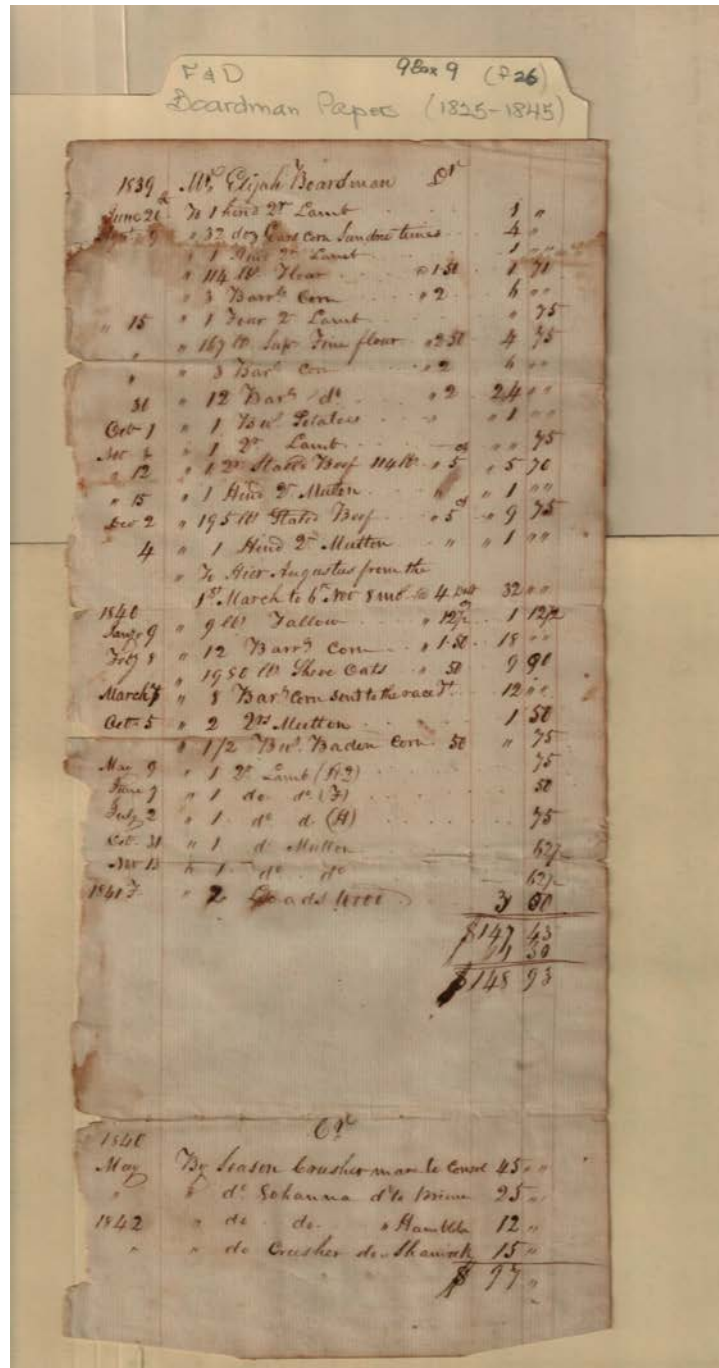 F & D Box 9 (f 26)
Boardman Papers (1825-1845)
1839 Mr Elijah Boardman Dr
June 26 To 1 hind Qr Lamb 1 "
9 " 32 doz Ears Corn Sundrie times 4 "
" 1 Hind Qr Lamb 1 " "
" 114 lb Flour @ 1.50 1 71
" 3 Barrls Corn " 2 6 " "
" 15 " 1 Four Qr Lamb " 75
" " 167 lb Supr Fine flour " 2.50 4 75
" " 3 Barls Corn " 2 6 " "
30 " 12 Barls do " 2 24 " "
Oct 1 " 1 Bul Potatoes " " 1 " "
Nov " 1 Qr Lamb " " 75
" 12 " 1 Qr Stated Beef 114 lb " 5 " 5 70
" 15 " 1 Hind Qr Muton " " 1 " "
Dec 2 " 195 lb Stated Beef " 5 " 9 75
4 " 1 Hind Qr Mutton " " 1 " "
" To Hier Augustus from the
1st March to 6th Nov 8 mo @ 4 32 " "
1840
Jany 9 " 9 lb Tallow " 12½ 1 12½
Feby 8 " 12 Barrls Corn " 1.50 18 " "
" 1980 lb Sheve Oats " 50 9 90
March " 8 Barls Corn sent to the race 12 " "
Oct 5 " 2 Qrs Mutton 1 50
" 1/2 Bul. Baden Corn 50 " 75
May 9 " 1 Qr Lamb (H2) 75
June 7 " 1 do do (F) 50
July 2 " 1 do d (H) 75
Oct 31 " 1 d Mutton 62½
Nov 13 " 1 do do 62½
1841 F " 2 Loads 3 00
$147 43
$148 93
Cr
1840
May By Season Crusher mare to 45 " "
" " do Gohanna do to 25 " "
1842 " do do " 12 "
" " do Crusher do " Shamrock 15 "
$ 97 "